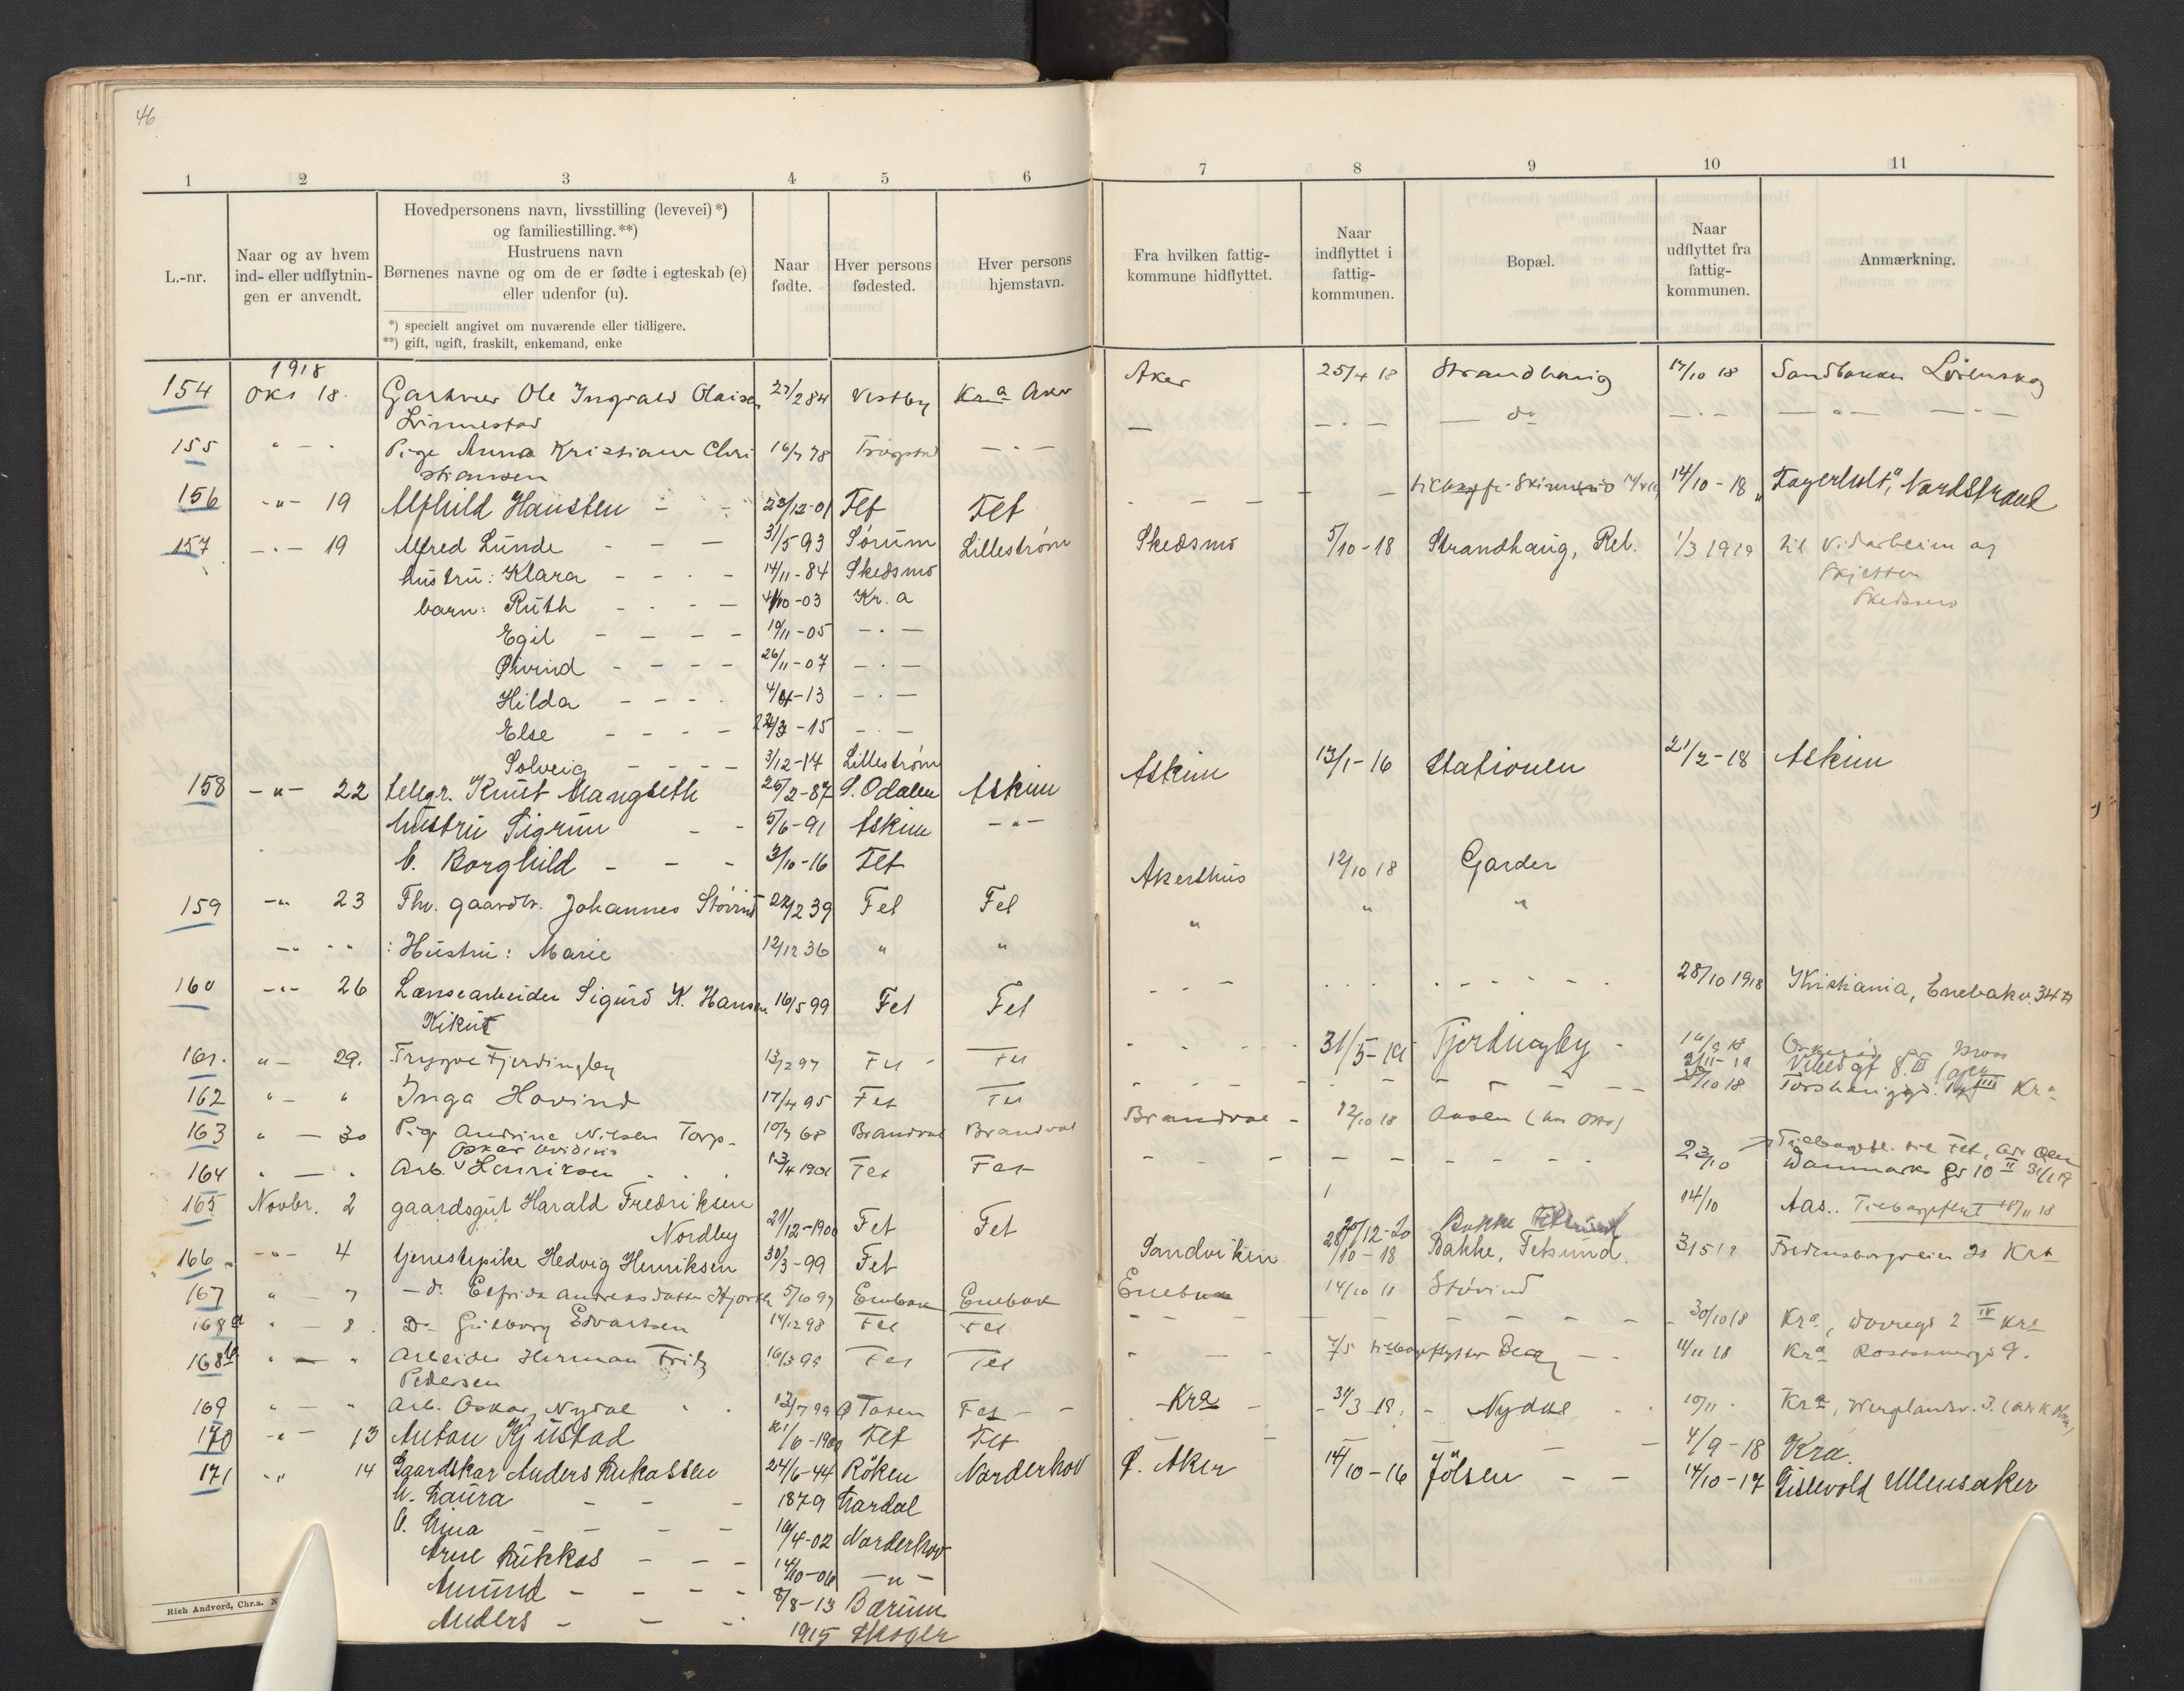 46
1 2 3 4 5 6 7 8 9 10 11
L.-nr.
Naar og av hvem
ind- eller udflytnin-
gen er anvendt.
Hovedpersonens navn, livsstilling (levevei)*)
og familiestilling.**)
Hustruens navn
Børnenes navne og om de er fødte i egteskab (e)
eller udenfor (u).
*) specielt angivet om nuværende eller tidligere.
**) gift, ugift, fraskilt, enkemand, enke
Naar
fødte.
Hver persons
fødested.
Hver persons
hjemstavn.
Fra hvilken fattig-
kommune hidflyttet.
Naar
indflyttet i
fattig-
kommunen.
Bopæl.
Naar
udflyttet fra
fattig-
kommunen.
Anmærkning.
1918
154 Okt 18. Gartner Ole Ingvald Olaisen Vestby Kr.a Aker Aker 25/4 18 Strandhaug 17/10 18 Lørenskog
Linnestad
155 " - " Pige Anna Kristiane Chri 16/7 78 Trøgstad - " - — - " - — do - " - — " — — " —
stiansen
156 -"- 19 Alfhild Hansteen - - 22/12-01 Fet Fet - - - - - 14/10-18 "Fagerholt", Nordstrand
157 -"- 19 Alfred Lunde - - - 31/5-93 Sørum Lillestrøm Skedsmo 5/10-18 Strandhaug, Rel. 1/3 1919 til Vidarheim og
hustru: Klara - - - - 14/11-84 Skedsmo Skjetten
barn: Ruth - - - - 4/10-03 Kr.a Skedsmo
Egil - - - - 19/11-05 - " -
Øivind - - - - 26/11-07 - " -
Hilda - - - - 4/4-13 - " -
Else - - - - -15 - " -
Solveig - - - - 3/12-17 Lillestrøm
158 -"- 22 telegr. Knut Mangseth 26/2-87 S. Odalen Askim Askim 13/1-16 Stationen 21/2-18 Askim
hustru Sigrun - - 5/6-91 Askim -"-
b. Borghild - - - 3/10-16 Fet
159 -"- 23 Fhv. gaardbr. Johannes Støvind 39 Fet Fet Akershus 12/10 18 Garder
-" - " : Hustru: Marie 12/12 36 " " " " "
160 -"- 26 Lænsearbeider Sigurd K. Hansen 16/5 99 Fet Fet - - - . . . - - - - - 28/10 1918 Kristiania, Enebakv. 34
Kikut
161. " - 29. Trygve Fjerdingby 13/2 97 Fet Fet - - - - 31/5-19 Fjerdingby - 16/9 18 Moss
162 " - " Inga Hovind 17/4 95 Fet Fet - - - - - - - - 28/10 18 Kr.a
163 " - 30 Pige Andrine Nilsen Torp- 10/7 68 Brandval Brandval Brandval - 12/10 18 Aasen
Oskar Ovidius
164 " - " Arb. Henriksen 13/4 1901 Fet Fet - - - - - - - - 23/10 Danmarks gt 10 II
165 Novbr. 2 gaardsgut Harald Fredriksen 21/12-1900 Fet Fet 14/10 Aas.
Nordby
166 -"- 4 tjenestepike Hedvig Henriksen 30/3-99 Fet Sandviken 28/10-18 Bakke, Fetsund. 31 5 19 Fredensborgveien 21 Kr.a
167 " - 7 - do. Elfrida Andreasdatter Hjorth 5/10 97 Enebak Enebak Enebak 14/10 18 Støvind
168a " - 8. Do Gudborg Edvartsen 14/12 98 Fet Fet - - - - - - - - 30/10 18 Kr.a, 2 IV Kr.a
168b " - " Arbeider Herman Fritz 16/3 98 Fet Fet - - - 7/5 - - 11/11 18 Kr.a 9.
Pedersen
169 " - " Arb. Oskar Nydal 13/7 99 Fet - - - Kr.a - - 31/3 18. - Nydal 10/11. Kr.a, Wergelandsv. 3.
170 -"- 13 Anton Kjustad /6-1900 Fet Fet - - - - 4/9-18 Kra.
171 -"- 14 Gaardskar Anders Lukassen 24/6-44 Røken Norderhov Ø. Aker 14/10-16 Jølsen - - 14/10-17 Gislevold Ullensaker
h. Laura - - - 1879 Lardal
b. Lina - - - - 16/4-02 Norderhov
Arne Lukkas - - - 14/10-06 -"-
Amund - - - - 8/8-13 Bærum
Anders - - - 1915 Skoger
Rich Andvord, Chr.a. N